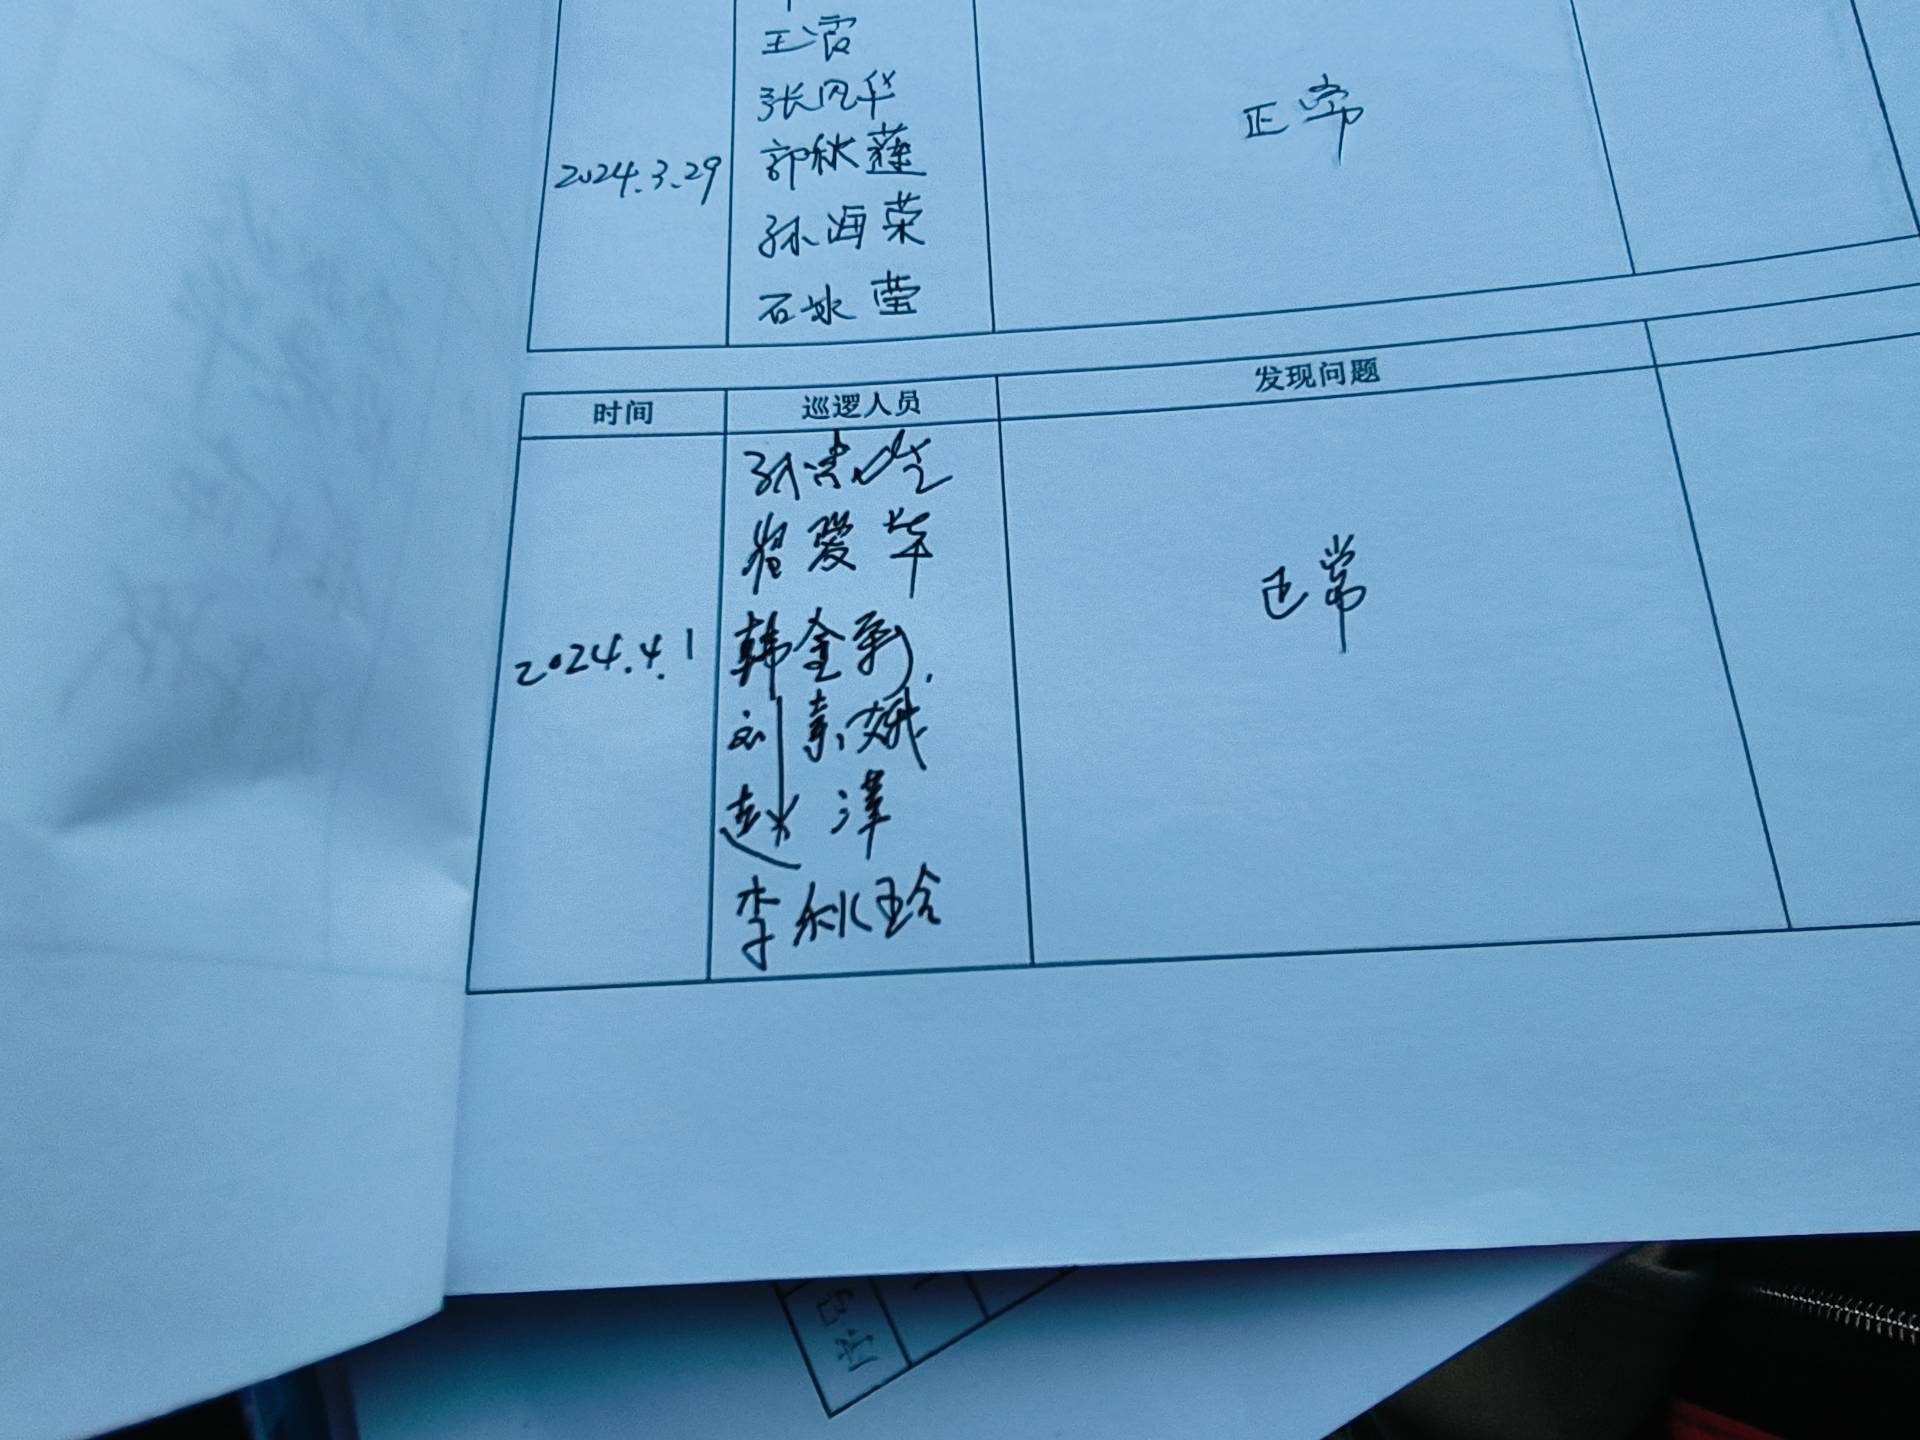 王霞
张凤华
郭秋莲
2024.3.29
正常
孙海荣
石冰莹
时间 巡逻人员 发现问题
崔爱华
2024.4.1
正常
韩金彩
刘素娥
赵泽
李秋玲